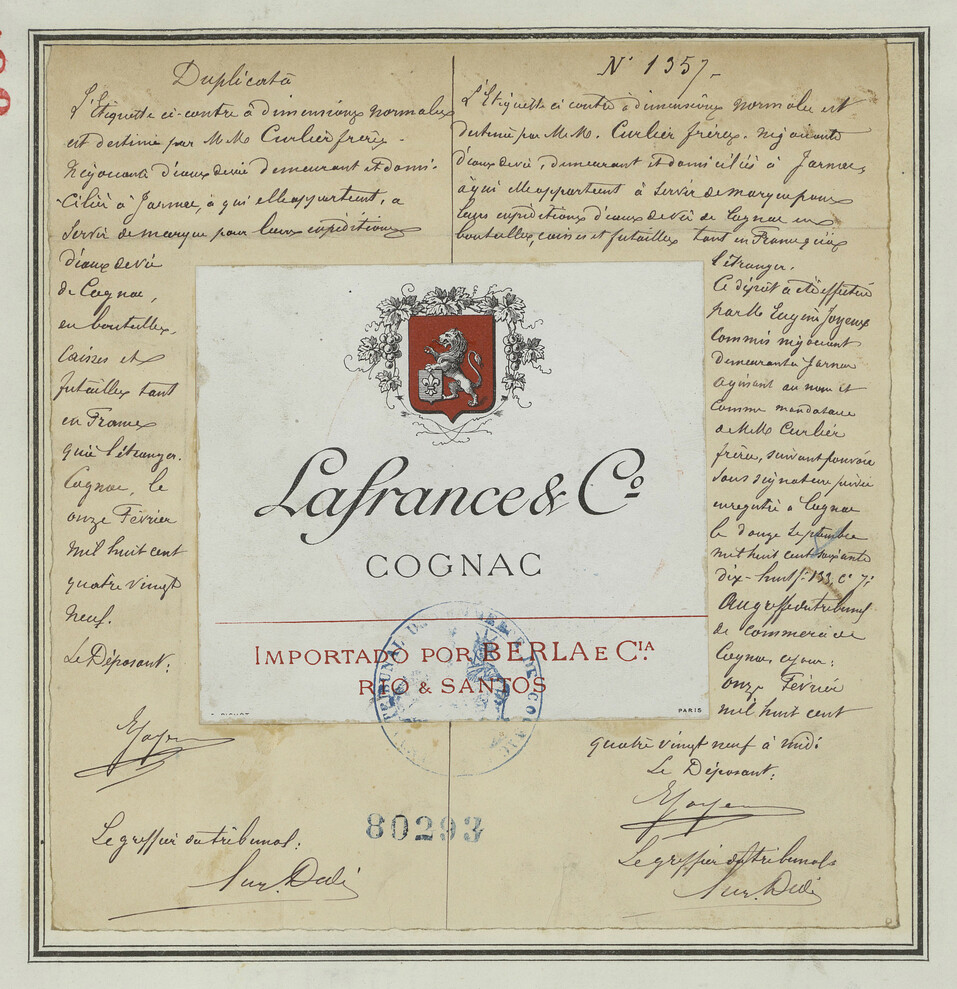 Duplicata
L'Etiquette ci-contre à dimensions normales
est destinée par M.M. Curlier frères.
Négociants d'eaux de vie demeurant et domi-
-ciliés à Jarnac, à qui elle appartient, a
servir de marque pour leurs expéditions
d'eaux de vie
de Cognac,
en bouteilles,
caisses et
futailles tant
en France
qu'à l'étranger.
Cognac, le
onze Février
mil huit cent
quatre vingt
neuf.
Le Déposant:
Le greffier du tribunal:
N° 1357
L'Etiquette ci contre à dimensions normales est
destinée par M.M. Curlier frères, négociants
d'eaux de vie, demeurant et domiciliés à Jarnac,
à qui elle appartient à servir de marque pour
leurs expéditions d'eaux de vie de Cognac en
bouteilles caisses et futailles tant en France qu'à
l'étranger.
Ce dépôt a été effectué
par M. Eugène Joyeux
commis négociant
demeurant à Jarnac
agissant au nom et
comme mandataire
de M.M. Curlier
frères, suivant pouvoir
sous signature privée
enregistré à Cognac
le douze Septembre
mil huit cent soixante
dix-huit f: 133. C. 7:
Au greffe du tribunal
de commerce de
Cognac, ce jour:
onze Février
mil huit cent
quatre vingt neuf à midi
Le Déposant:
Le greffier du tribunal
Lafrance & Cº
COGNAC
IMPORTADO POR BERLA E CIA.
RIO & SANTOS
PARIS
TRIBUNAL DE COMMERCE DE COGNAC
80293